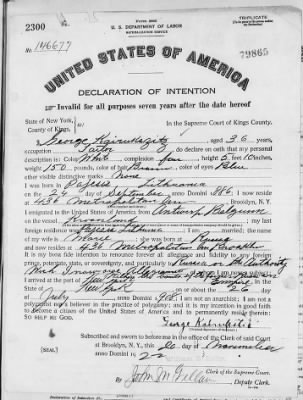 Form 2202
U. S. DEPARTMENT OF LABOR
NATURALIZATION SERVICE
TRIPLICATE
2300
No. 146677
79865
UNITED STATES OF AMERICA
DECLARATION OF INTENTION
Invalid for all purposes seven years after the date hereof
State of New York,
County of Kings.
In the Supreme Court of Kings County.
I, George aged 36 years,
occupation Tailor, do declare on oath that my personal
description is: Color White, complexion fair, height 5 feet 10 inches,
weight 150 pounds, color of hair Brown, color of eyes Blue
other visible distinctive marks none
I was born in Lithuania
on the 24 day of September, anno Domini 1886; I now reside
at 436 Metropolitan Ave, Brooklyn, N. Y.
I emigrated to the United States of America from Antwerp Belgium
on the vessel; my last
foreign residence was; I am married; the name
of my wife is Marie; she was born in Russia
and now resides at 436 Metropolitan Ave Brooklyn
It is my bona fide intention to renounce forever all allegiance and fidelity to any foreign
prince, potentate, state, or sovereignty, and particularly to Russia or
of whom I am now a subject; I
arrived at the port of New York, in the
State of New York, on or about the 26 day
of July, anno Domini 1908; I am not an anarchist; I am not a
polygamist nor a believer in the practice of polygamy; and it is my intention in good faith
to become a citizen of the United States of America and to permanently reside therein:
SO HELP ME GOD.
Subscribed and sworn to before me in the office of the Clerk of said Court
at Brooklyn, N. Y., this day of November
anno Domini 1922
[SEAL]
Clerk of the Supreme Court.
By John M
Deputy Clerk.